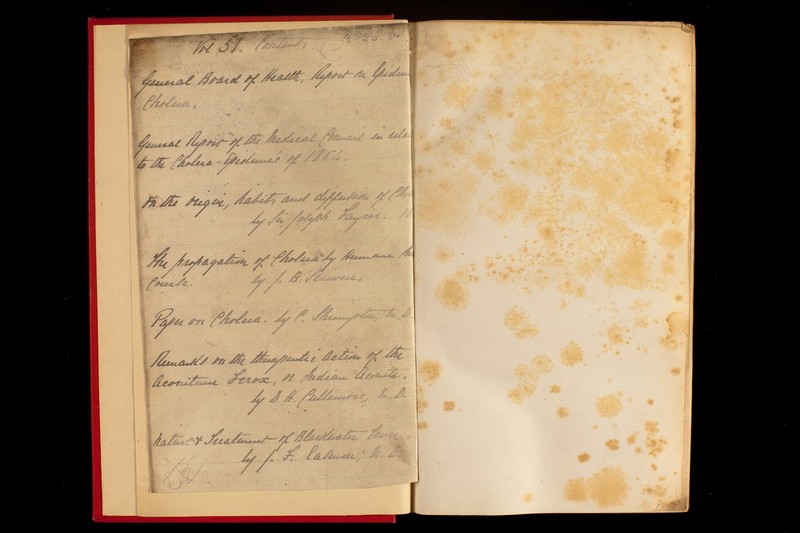 Vol 51. Contents.
General Board of Health, Report on Epidem
Cholera.
General Report of the Medical Council in rela
to the Cholera-Epidemic of 1854.
On the origin, habits and diffusion of Cho
by Sir Joseph Fayrer.
The propagation of Cholera by Human
Course. by J. B.
Paper on Cholera. by C. Shrimpton, M. D.
Remarks on the therapeutic action of the
Aconitum Ferox, or Indian Aconite.
by D. H. Cullimore, M. D.
Nature & Treatment of Blackwater Fever.
by J. F. Easmon, M. D.